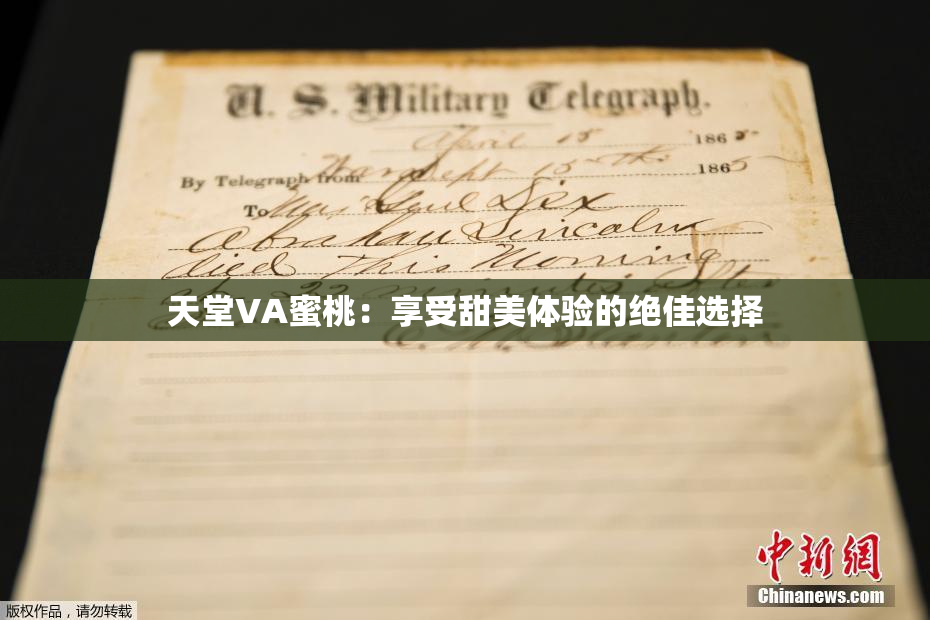 U. S. Military Telegraph.
April 15 1865
By Telegraph from War Dept 15th 1865
To Maj Genl Dix
Abraham Lincoln
died This Morning
at 22 minutes after
天堂VA蜜桃：享受甜美体验的绝佳选择
E. M. Stanton
中新網
Chinanews.com
版权作品，请勿转载